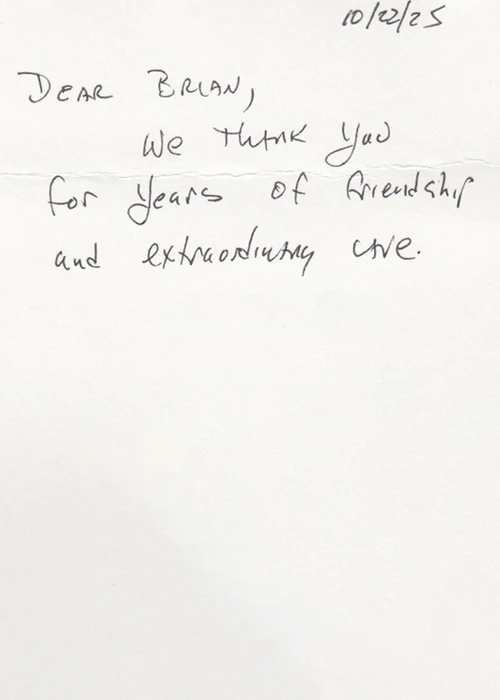 10/22/25
DEAR BRIAN,
We THANK You
for years of friendship
and extraordinary care.